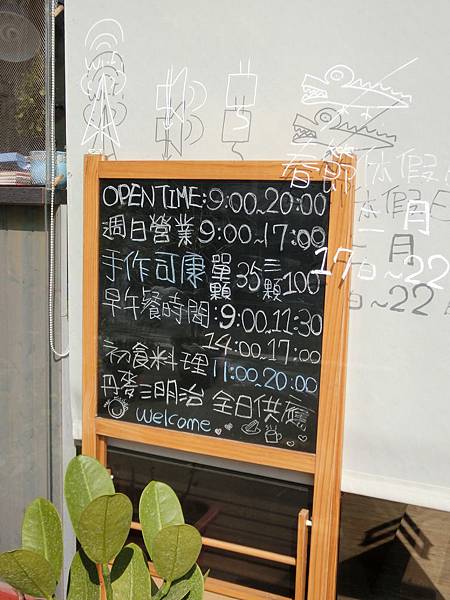 春節休假
二月
17日~22
OPEN TIME:9:00~20:00
週日營業9:00~17:00
手作可麗單顆35三顆100
早午餐時間:9:00~11:30
14:00~17:00
初食料理11:00~20:00
丹麥三明治 全日供應
welcome